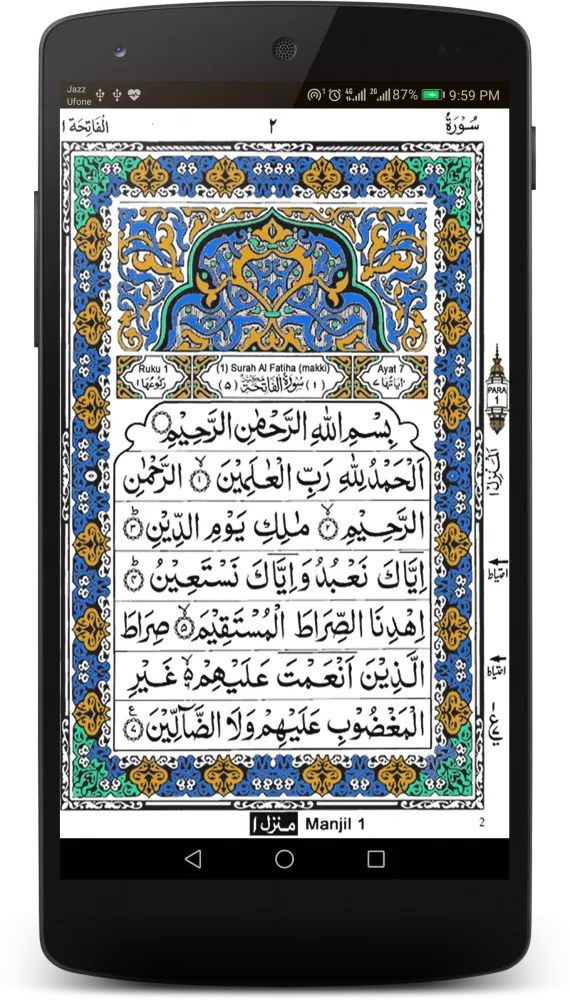 Jazz
Ufone
87% 9:59 PM
سُوْرَةُ ٢ الْفَاتِحَة ١
Ruku 1 (1) Surah Al Fatiha (makki) Ayat 7
اٰيَاتُهَا ٧ (١) سُوْرَةُ الْفَاتِحَةِ مَكِّيَّةٌ (٥) رُكُوْعُهَا ١
بِسْمِ اللّٰهِ الرَّحْمٰنِ الرَّحِيْمِ
اَلْحَمْدُ لِلّٰهِ رَبِّ الْعٰلَمِيْنَ ۙ﴿١﴾ الرَّحْمٰنِ
الرَّحِيْمِ ۙ﴿٢﴾ مٰلِكِ يَوْمِ الدِّيْنِ ﴿٣﴾
اِيَّاكَ نَعْبُدُ وَاِيَّاكَ نَسْتَعِيْنُ ﴿٤﴾
اِهْدِنَا الصِّرَاطَ الْمُسْتَقِيْمَ ۙ﴿٥﴾ صِرَاطَ
الَّذِيْنَ اَنْعَمْتَ عَلَيْهِمْ ۙ۬ غَيْرِ
الْمَغْضُوْبِ عَلَيْهِمْ وَلَا الضَّآلِّيْنَ ﴿٧﴾
PARA
1
اَلْمَنْزِل ١
احتیاط
احتیاط
منزل ١ Manjil 1
2